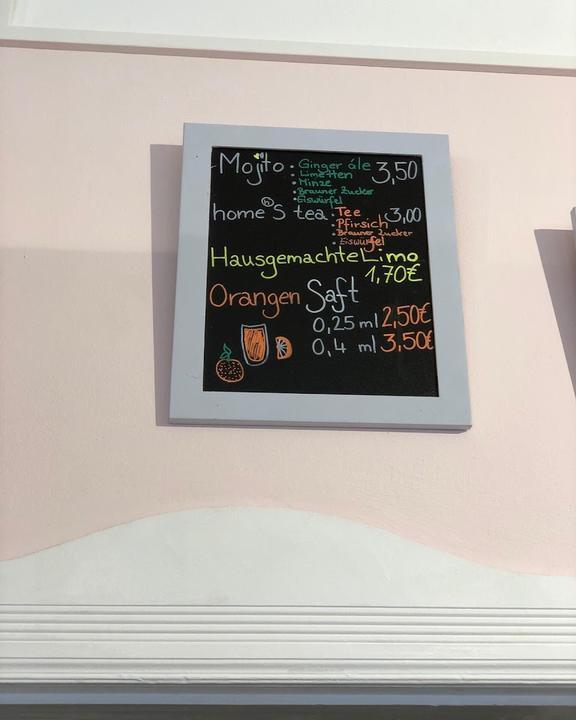 Mojito • Ginger ále 3,50
• Limetten
• Minze
• Brauner Zucker
• Eiswürfel
home's tea • Tee 3,00
• Pfirsich
• Brauner Zucker
• Eiswürfel
Hausgemachte Limo
1,70€
Orangen Saft
0,25 ml 2,50€
0,4 ml 3,50€